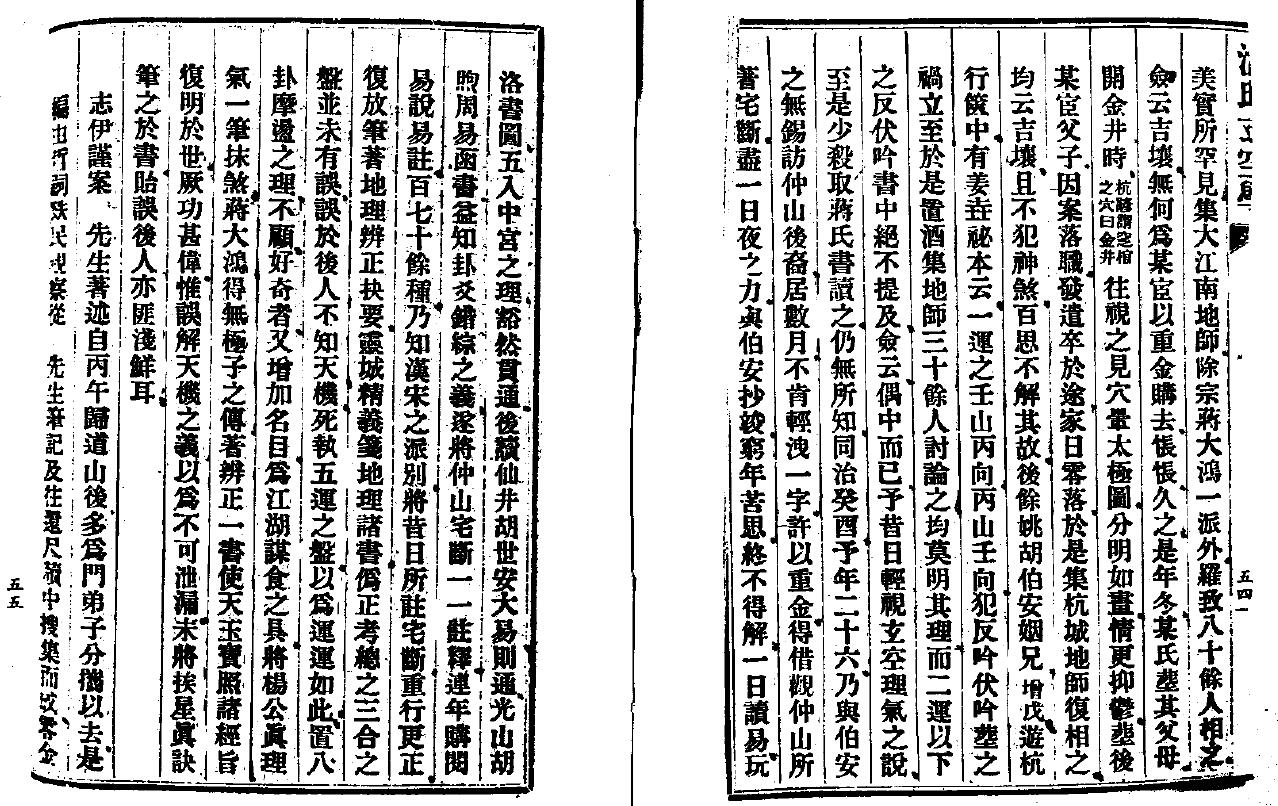 美實所罕見集大江南地師除宗蔣大鴻一派外羅致八十餘人相之
僉云吉壤無何爲某宦以重金購去悵悵久之是年冬某氏塟其父母
開金井時杭諺謂空棺之穴曰金井往視之見穴暈太極圖分明如畫情更抑鬱塟後
某宦父子因案落職發遣卒於途家日零落於是集杭城地師復相之
均云吉壤且不犯神煞百思不解其故後餘姚胡伯安姻兄增戊遊杭
行篋中有姜垚祕本云一運之壬山丙向丙山壬向犯反吟伏吟塟之
禍立至於是置酒集地師三十餘人討論之均莫明其理而二運以下
之反伏吟書中絕不提及僉云偶中而已予昔日輕視玄空理氣之說
至是少殺取蔣氏書讀之仍無所知同治癸酉予年二十六乃與伯安
之無錫訪仲山後裔居數月不肯輕洩一字許以重金得借觀仲山所
著宅斷盡一日夜之力與伯安抄竣窮年苦思終不得解一日讀易玩
五四
洛書圖五入中宮之理豁然貫通後讀仙井胡世安大易則通光山胡
煦周易函書益知卦爻錯綜之義遂將仲山宅斷一一註釋連年購閱
易說易註百七十餘種乃知漢宋之派別將昔日所註宅斷重行更正
復放筆著地理辨正抉要靈城精義箋地理諸書僞正考總之三合之
盤並未有誤誤於後人不知天機死執五運之盤以爲運運如此置八
卦摩盪之理不顧好奇者又增加名目爲江湖謀食之具將楊公眞理
氣一筆抹煞蔣大鴻得無極子之傳著辨正一書使天玉寶照諸經旨
復明於世厥功甚偉惟誤解天機之義以爲不可泄漏未將挨星眞訣
筆之於書貽誤後人亦匪淺鮮耳
志伊謹案先生著述自丙午歸道山後多爲門弟子分攜以去是
編也祈民察從先生筆記及往還尺牘中搜集而成零金
五五